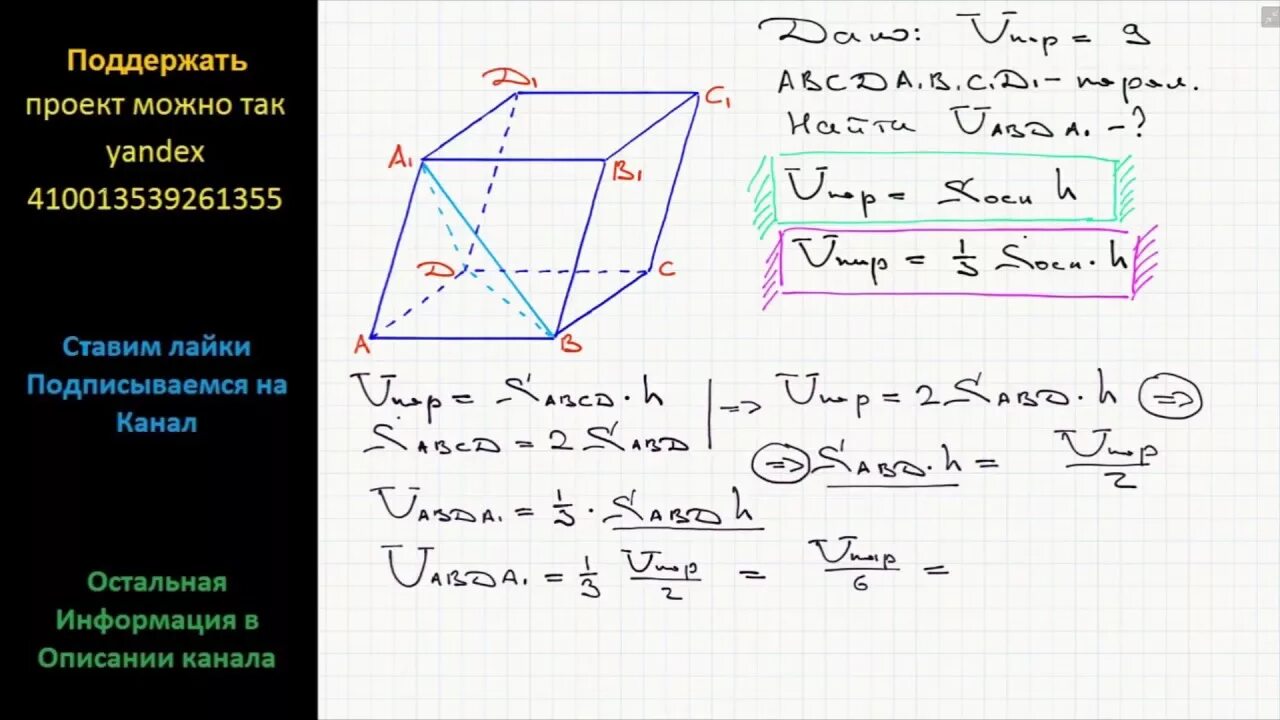 Поддержать
проект можно так
yandex
410013539261355
Ставим лайки
Подписываемся на
Канал
Остальная
Информация в
Описании канала
D₁
C₁
A₁
B₁
D
C
A
B
Дано: Vпар = 9
ABCDA₁B₁C₁D₁ – парал.
Найти VABDA₁ – ?
Vпар = Sосн h
Vпир = 1/3 Sосн · h
Vпар = SABCD · h
SABCD = 2 SABD
=> Vпар = 2 SABD · h =>
=> SABD · h = Vпар/2
VABDA₁ = 1/3 · SABD h
VABDA₁ = 1/3 Vпар/2 = Vпар/6 =